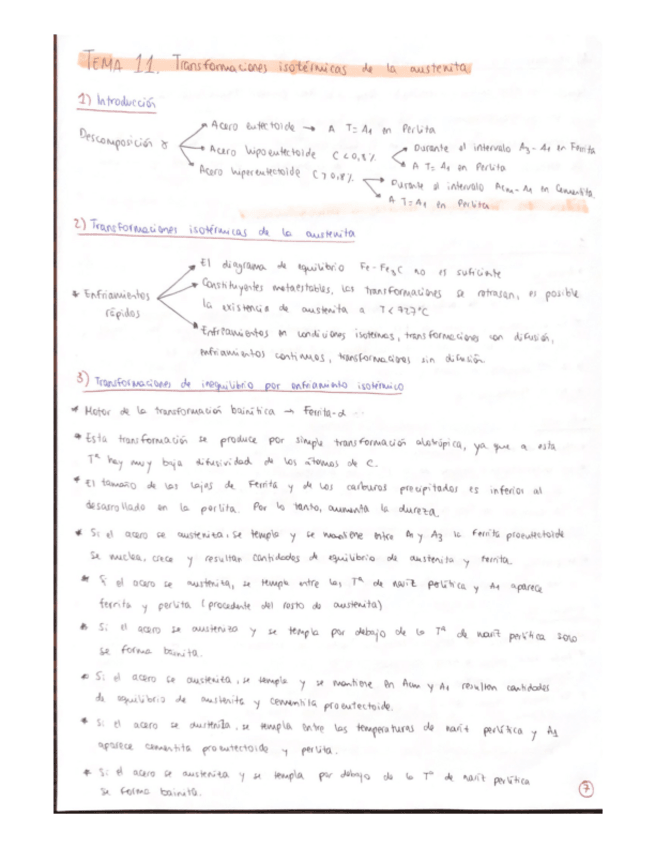 TEMA 11. Transformaciones isotérmicas de la austenita
1) Introducción
Descomposición γ
Acero eutectoide → A T= A1 en Perlita
Acero hipoeutectoide C<0,8%
Durante el intervalo A3-A1 en Ferrita
A T= A1 en Perlita
Acero hipereutectoide C>0,8%
Durante el intervalo Acm-A1 en Cementita
A T=A1 en Perlita
2) Transformaciones isotérmicas de la austenita
* Enfriamientos rápidos
El diagrama de equilibrio Fe-Fe3C no es suficiente
Constituyentes metaestables, las transformaciones se retrasan, es posible
la existencia de austenita a T<727ºC
Enfriamientos en condiciones isotermas, transformaciones con difusión,
enfriamientos continuos, transformaciones sin difusión.
3) Transformaciones de inequilibrio por enfriamiento isotérmico
* Motor de la transformación bainítica → Ferrita-α
* Esta transformación se produce por simple transformación alotrópica, ya que a esta
Tª hay muy baja difusividad de los átomos de C.
* El tamaño de las lajas de Ferrita y de los carburos precipitados es inferior al
desarrollado en la perlita. Por lo tanto, aumenta la dureza.
* Si el acero se austeniza, se templa y se mantiene entre A1 y A3 la ferrita proeutectoide
se nuclea, crece y resultan cantidades de equilibrio de austenita y ferrita.
* Si el acero se austeniza, se templa entre las Tª de nariz perlítica y A1 aparece
ferrita y perlita (procedente del resto de austenita)
* Si el acero se austeniza y se templa por debajo de la Tª de nariz perlítica solo
se forma bainita.
* Si el acero se austeniza, se templa y se mantiene en Acm y A1 resultan cantidades
de equilibrio de austenita y cementita proeutectoide.
* Si el acero se austeniza, se templa entre las temperaturas de nariz perlítica y A1
aparece cementita proeutectoide y perlita.
* Si el acero se austeniza y se templa por debajo de la Tª de nariz perlítica
se forma bainita.
7